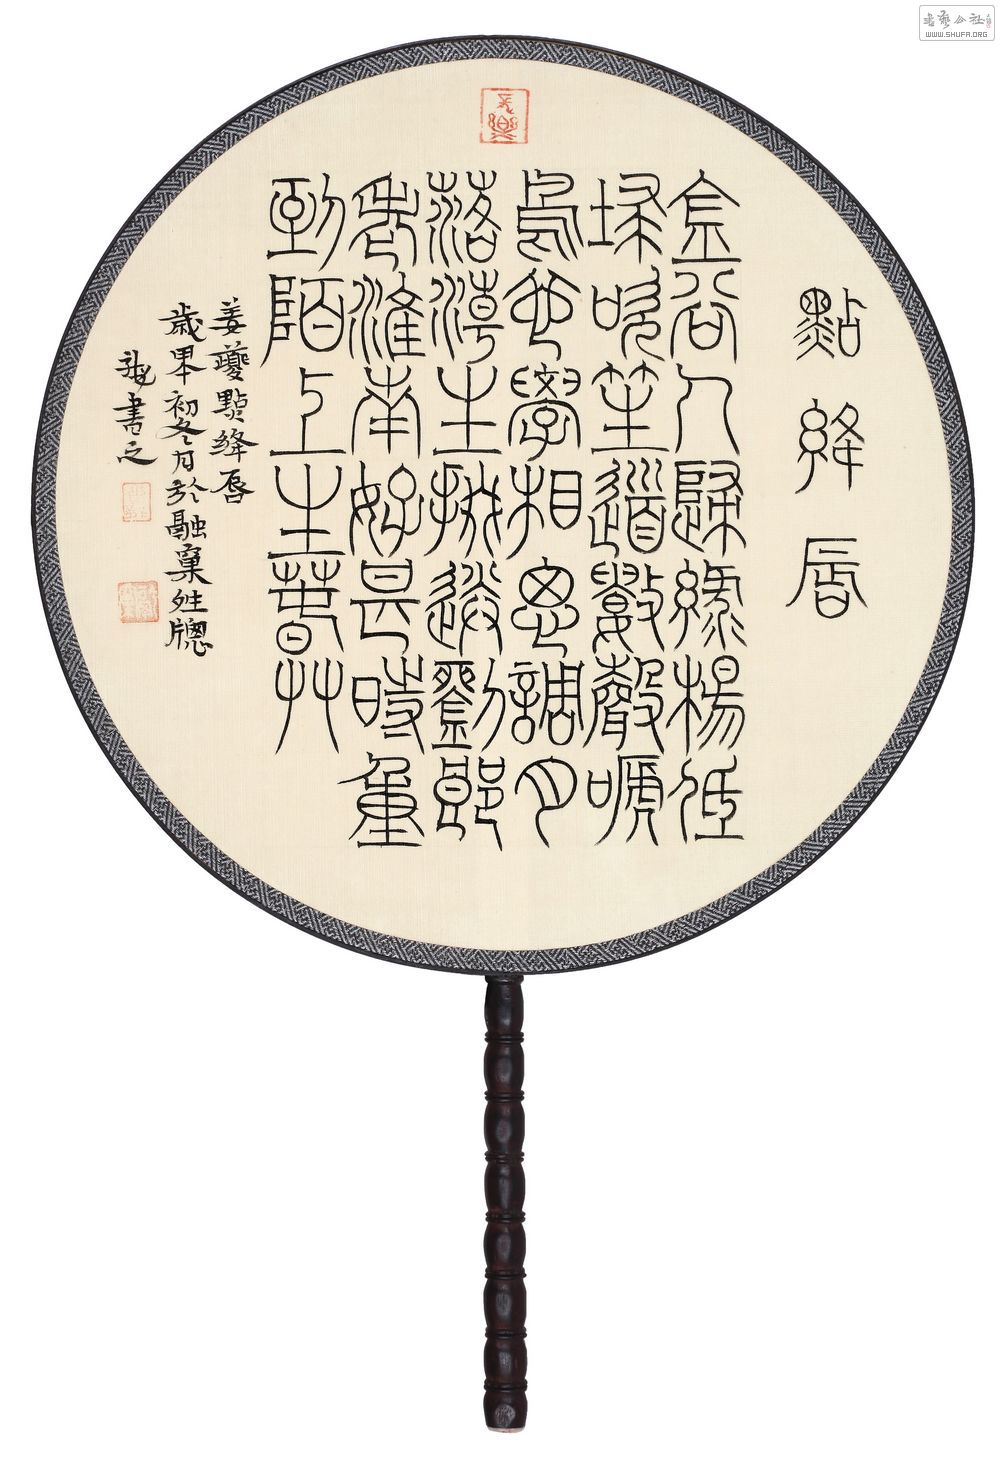 點絳唇
金谷人歸綠楊低
埽吹笙道數聲嗁
鳥也學相思調月
落潮生掇送劉郎
老淮南好甚時重
到陌上生春草
姜夔點絳唇
歲甲午初冬月於融巢牕
書之
長樂
書藝公社
WWW.SHUFA.ORG